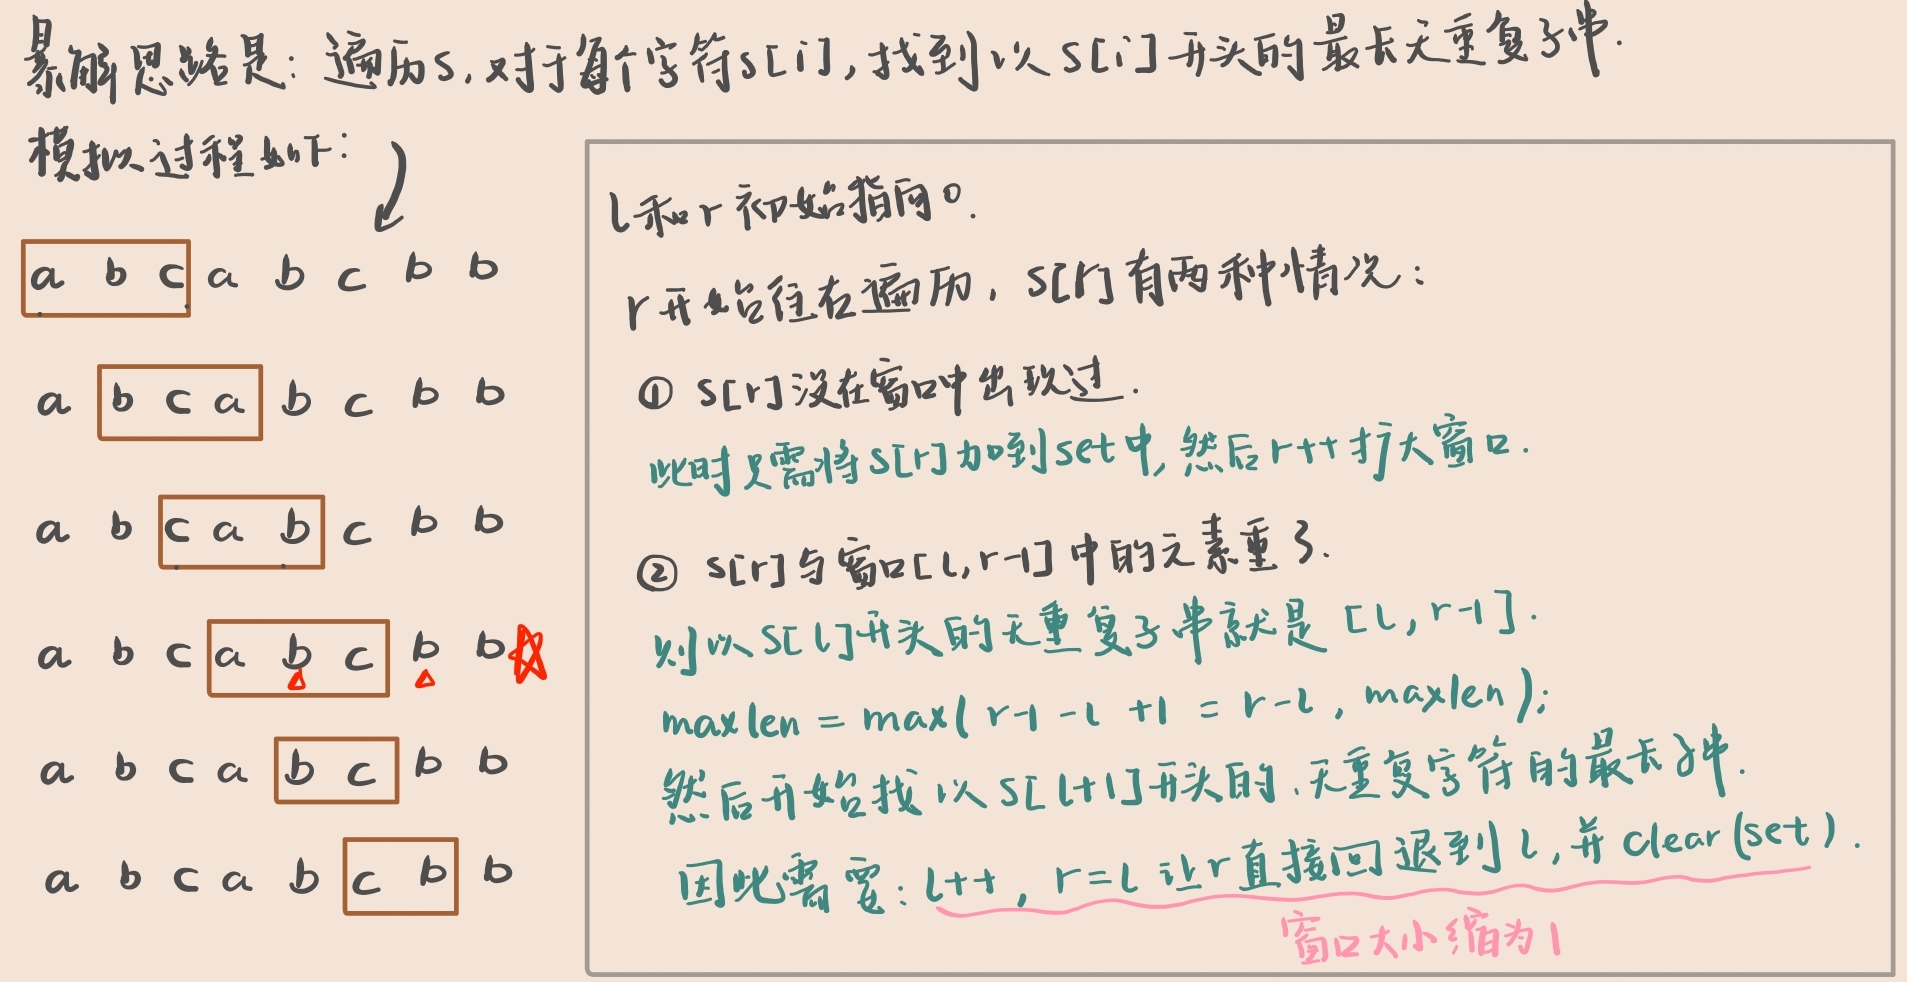 暴解思路是：遍历s，对于每个字符s[i]，找到以s[i]开头的最长无重复子串.
模拟过程如下：
a b c a b c b b
a b c a b c b b
a b c a b c b b
a b c a b c b b
a b c a b c b b
a b c a b c b b
l和r初始指向0.
r开始往右遍历，s[r]有两种情况：
① s[r]没在窗口中出现过.
此时只需将s[r]加到set中,然后r++扩大窗口.
② s[r]与窗口[l,r-1]中的元素重了.
则以s[l]开头的无重复子串就是[l,r-1].
maxlen = max(r-1-l+1 = r-l, maxlen);
然后开始找以s[l+1]开头的、无重复字符的最长子串.
因此需要：l++, r=l 让r直接回退到l,并clear(set).
窗口大小缩为1